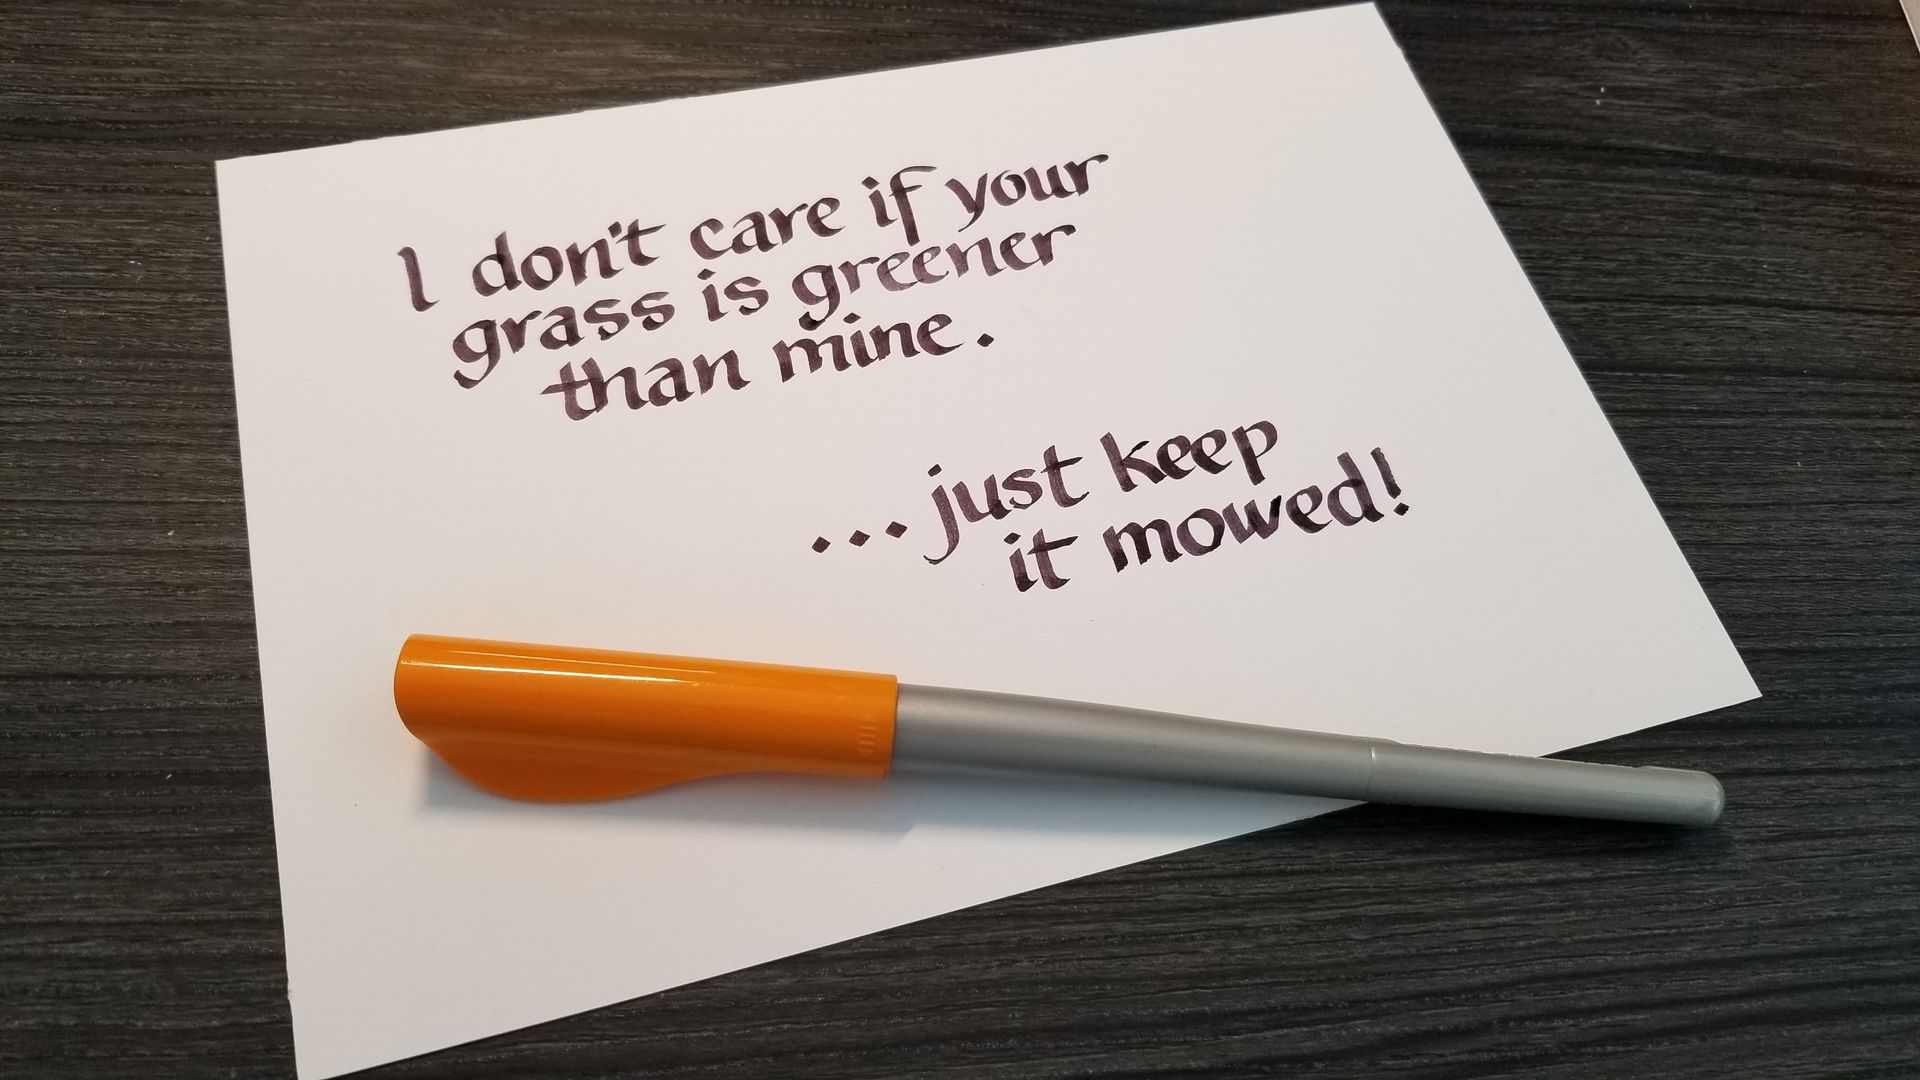 I don't care if your
grass is greener
than mine.
...just keep
it mowed!